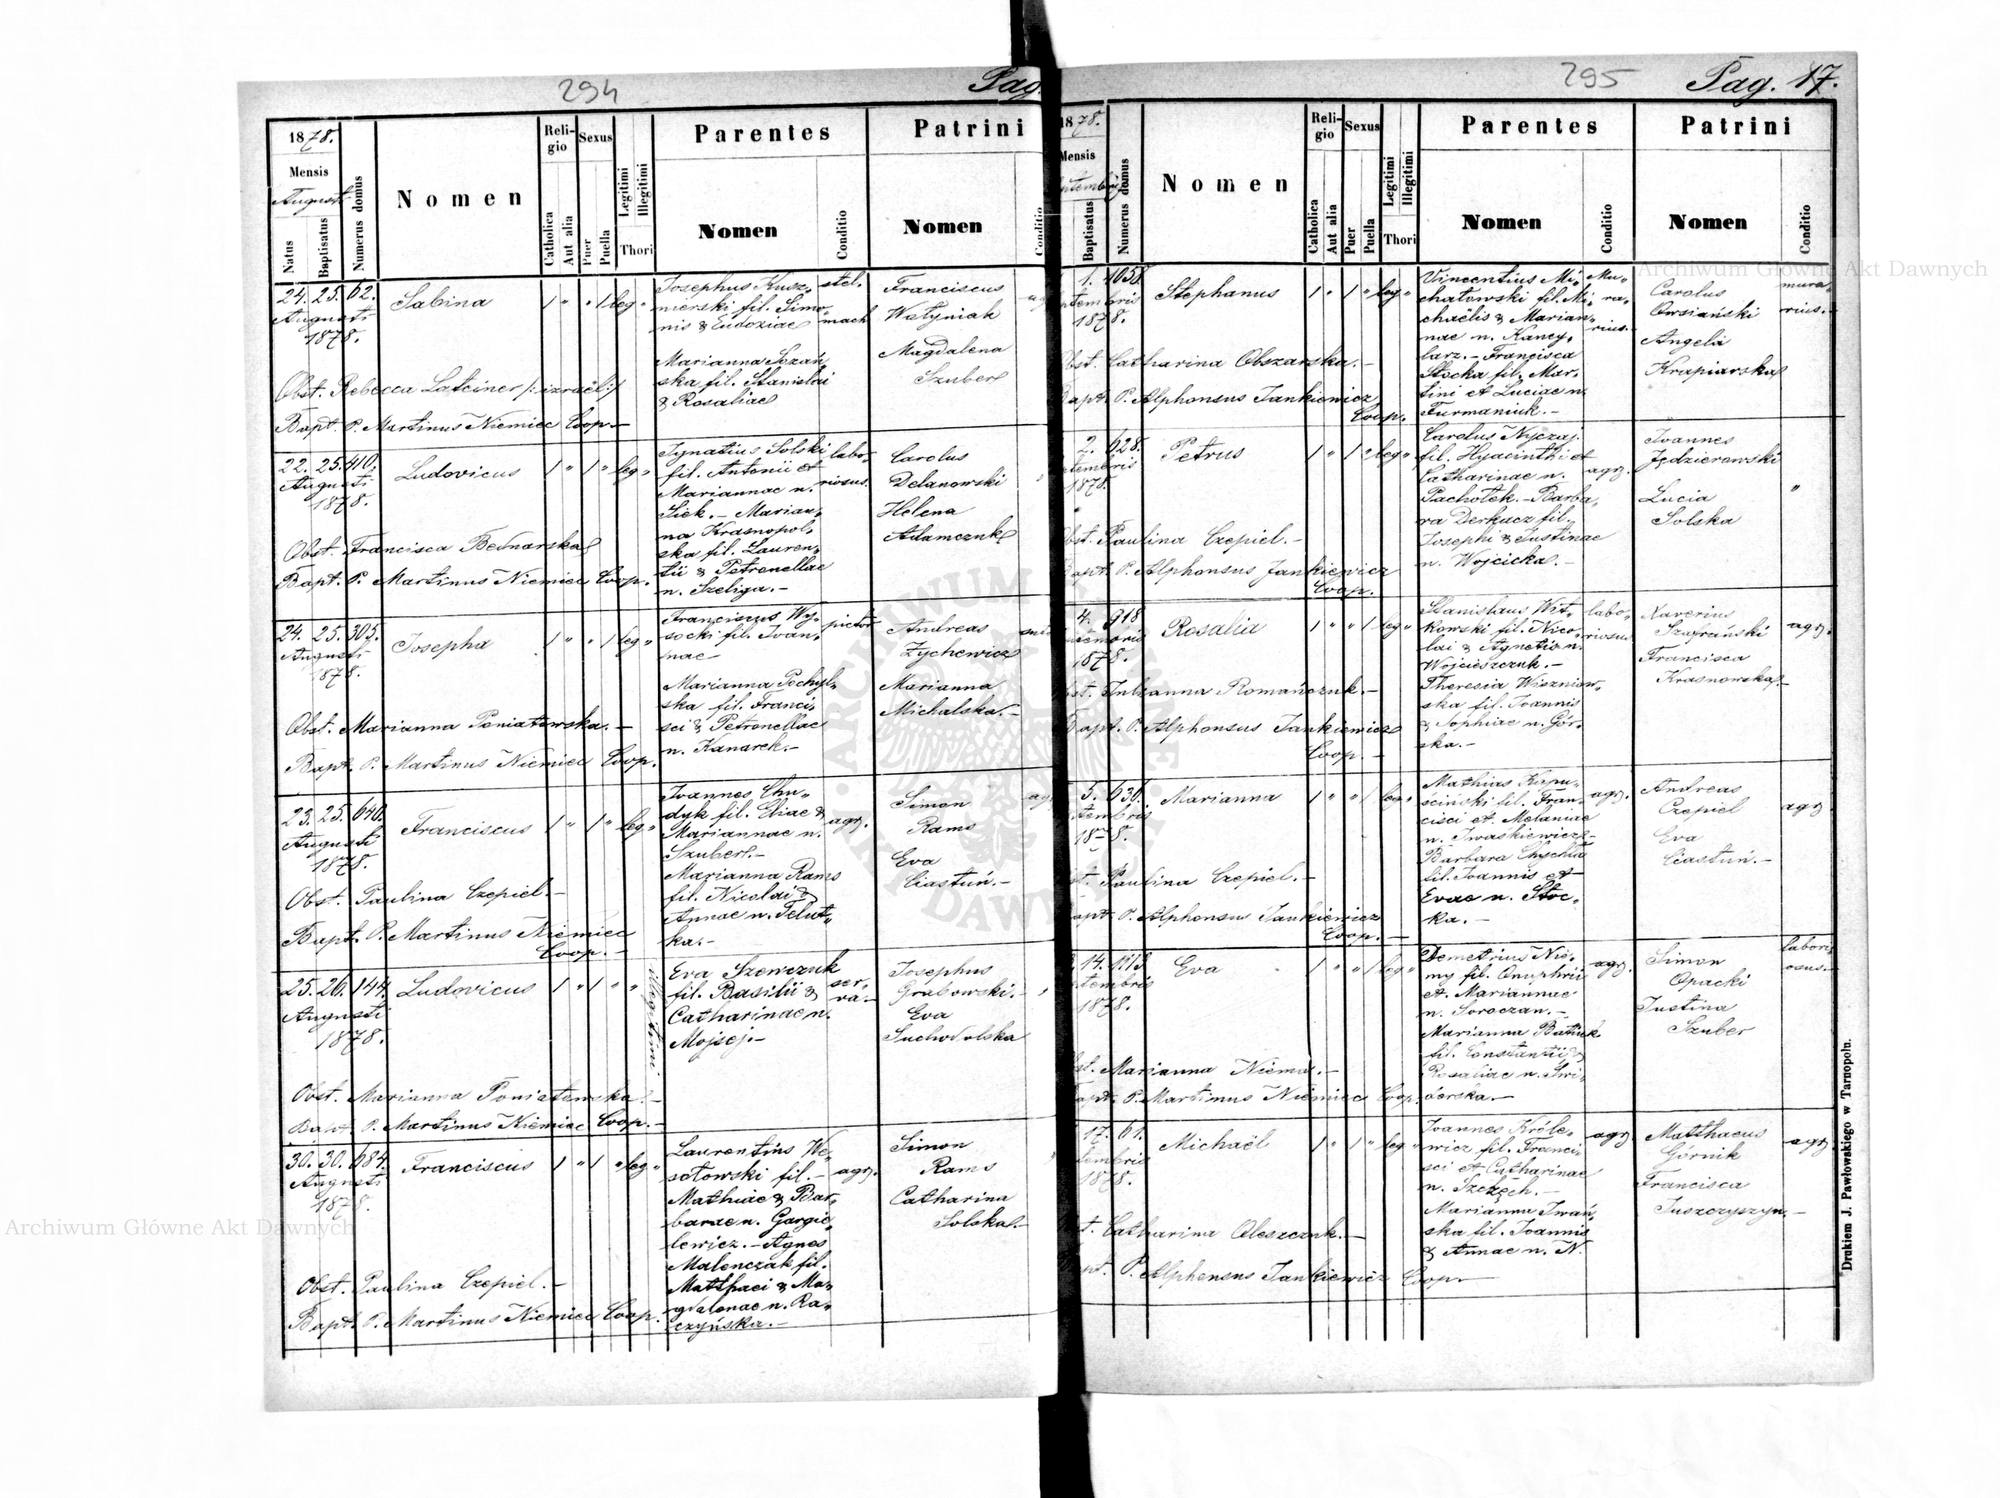 294
Pag.
1878.
Mensis
Augusti
Natus
Baptisatus
Numerus domus
Nomen
Religio
Catholica
Aut alia
Sexus
Puer
Puella
Legitimi
Illegitimi
Thori
Parentes
Nomen
Conditio
Patrini
Nomen
Conditio
24. 25. 62.
Augusti
1878.
Sabina
1 " " 1 leg "
Josephus Kusz-
mierski fil. Simo-
nis & Eudoxiae
Marianna
ska fil. Stanislai
& Rosaliae
stel-
mach
Franciscus
Wołyniak
Magdalena
Szuber
Obst. Rebecca Lateiner /: izraël :/
Bapt. P. Martinus Niemiec Coop.-
22. 25. 410.
Augusti
1878.
Ludovicus
1 " 1 " leg "
Ignatius Solski
fil. Antonii et
Mariannae n.
Siek. - Marian-
na Krasnopol-
ska fil. Lauren-
tii & Petronellae
n. Szeliga. -
labo-
riosus.
Carolus
Delanowski
Helena
Adamczuk
Obst. Francisca Bednarska
Bapt. P. Martinus Niemiec Coop.
24. 25. 305.
Augusti
1878.
Josepha
1 " " 1 leg "
Franciscus Wy-
socki fil. Joan-
nae
Marianna Pochyl-
ska fil. Franci-
sci & Petronellae
n. Kanarek. -
pictor
Andreas
Zychewicz
Marianna
Michalska. -
Obst. Marianna Poniatowska. -
Bapt. P. Martinus Niemiec Coop.
23. 25. 640.
Augusti
1878.
Franciscus
1 " 1 " leg "
Joannes Chu-
dyk fil. Eliae &
Mariannae n.
Szuber. -
Marianna Rams
fil. Nicolai &
Annae n. Telut-
ka. -
agr.
Simon
Rams
Eva
Ciastuń. -
Obst. Paulina Czepiel. -
Bapt. P. Martinus Niemiec
Coop. -
25. 26. 144.
Augusti
1878.
Ludovicus
1 " 1 " "
Eva Szewczuk
fil. Basilii &
Catharinae n.
Mojsej. -
ser-
va. -
Josephus
Grabowski. -
Eva
Suchodolska
Obst. Marianna Poniatowska. -
Bapt. P. Martinus Niemiec Coop. -
30. 30. 684.
Augusti
1878.
Franciscus
1 " 1 " leg "
Laurentius We-
sołowski fil. -
Mathiae & Bar-
barae n. Gargie-
lewicz. - Agnes
Malenczak fil.
Matthaei & Ma-
gdalenae n. Ra-
czyńska. -
agr.
Simon
Rams
Catharina
Solska. -
Obst. Paulina Czepiel. -
Bapt. P. Martinus Niemiec Coop.
295
Pag. 17.
1878.
Mensis
Baptisatus
Numerus domus
Nomen
Religio
Catholica
Aut alia
Sexus
Puer
Puella
Legitimi
Illegitimi
Thori
Parentes
Nomen
Conditio
Patrini
Nomen
Conditio
1. 1058.
1878.
Stephanus
1 " 1 " leg "
Vincentius Mi-
chałowski fil. Mi-
chaëlis & Marian-
nae n. Kancy-
larz. - Francisca
Stocka fil. Mar-
tini et Luciae n.
Furmaniuk. -
Mu-
ra-
rius. -
Carolus
Owsiański
Angela
Krapiarska
mura-
rius. -
Catharina Obszarska. -
P. Alphonsus Jankiewicz
Coop.
2. 628.
1878.
Petrus
1 " 1 " leg "
Carolus Nyczaj
fil. Hyacinthi et
Catharinae n.
Pachołek. - Barba-
ra Derkacz fil.
Josephi & Justinae
n. Wojcicka. -
agr.
Joannes
Jędzierowski
Lucia
Solska
"
Paulina Czepiel. -
P. Alphonsus Jankiewicz
Coop.
4. 918
1878.
Rosalia
1 " " 1 leg "
Stanislaus Wit-
kowski fil. Nico-
lai & Agnetis n.
Wojcieszczuk. -
Theresia Wiszniow-
ska fil. Joannis
& Sophiae n. Gór-
ska. -
labo-
riosus
Xaverius
Szafrański
Francisca
Krasnowska. -
agr.
Julianna Romańczuk. -
P. Alphonsus Jankiewicz
Coop. -
5. 636.
1878.
Marianna
1 " " 1 leg "
Mathias Kapu-
sciński fil. Fran-
cisci et Melaniae
n. Iwaskiewicz -
Barbara Chychła
fil. Joannis et
Evae n. Stoc-
ka. -
agr.
Andreas
Czepiel
Eva
Ciastuń. -
agr.
Paulina Czepiel. -
P. Alphonsus Jankiewicz
Coop. -
14. 1113
1878.
Eva
1 " " 1 leg "
Demetrius Nie-
my fil. Onuphrii
et Mariannae
n. Soroczan. -
Marianna Batiuk
fil. Constantii &
Rosaliae n. Swi-
derska. -
agr.
Simon
Opacki
Justina
Szuber
labori-
osus. -
Marianna Niema. -
P. Martinus Niemiec Coop.
17. 61.
1878.
Michaël
1 " 1 " leg "
Joannes Króle-
wicz fil. Franci-
sci et Catharinae
n. Szczęch. -
Marianna Iwań-
ska fil. Joannis
& Annae n. N.
agr.
Matthaeus
Górnik
Francisca
Juszczyszyn. -
agr.
Catharina Oleszczuk. -
P. Alphonsus Jankiewicz Coop. -
Drukiem J. Pawłowskiego w Tarnopolu.
Archiwum Główne Akt Dawnych
Archiwum Główne Akt Dawnych